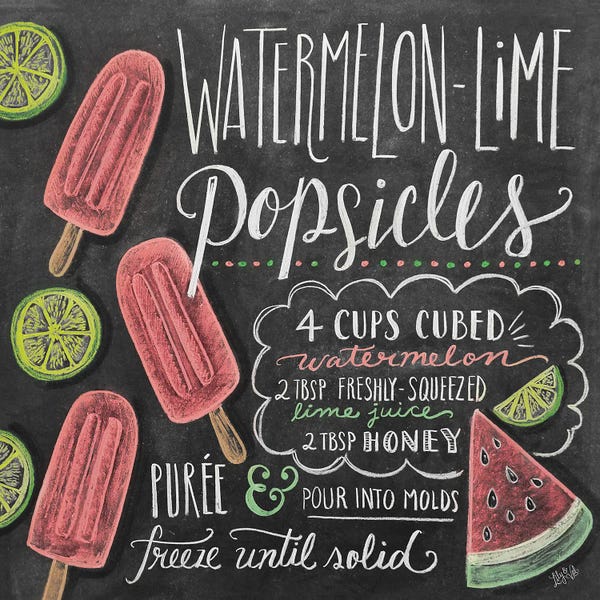 WATERMELON-LiME
Popsicles
4 CUPS CUBED
watermelon
2 TBSP FRESHLY-SQUEEZED
lime juice
2 TBSP HONEY
PURÉE & POUR INTO MOLDS
freeze until solid
Lily & Val